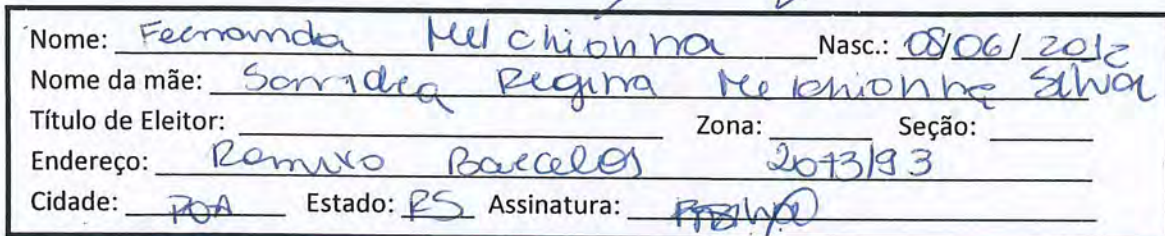 Nome: Fernanda Melchionna Nasc.: 08/06/2012
Nome da mãe: Sandra Regina Melchionna Silva
Título de Eleitor: Zona: Seção:
Endereço: Ramiro Barcelos 2073/93
Cidade: POA Estado: RS Assinatura: